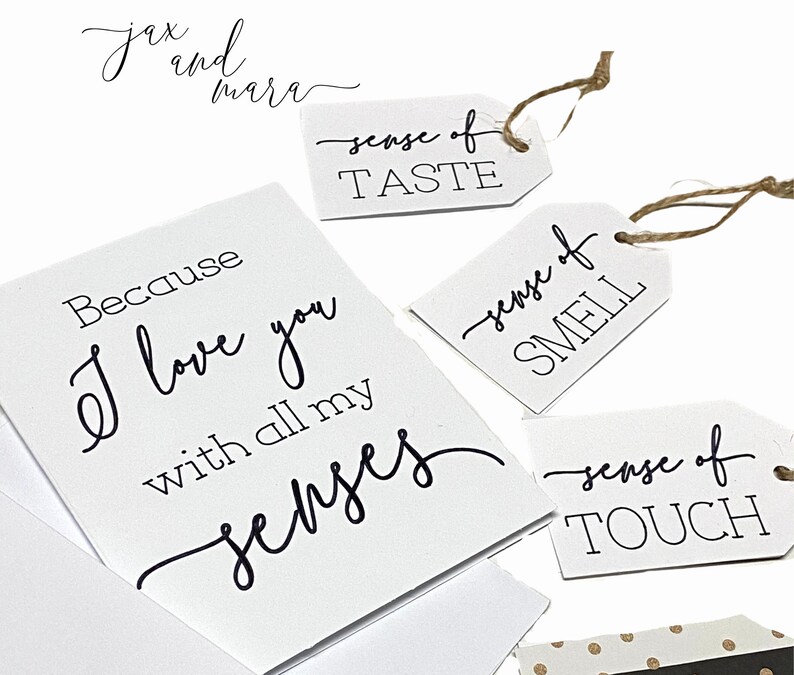 jax
and
mara
sense of
TASTE
Because
I love you
with all my
senses
sense of
SMELL
sense of
TOUCH